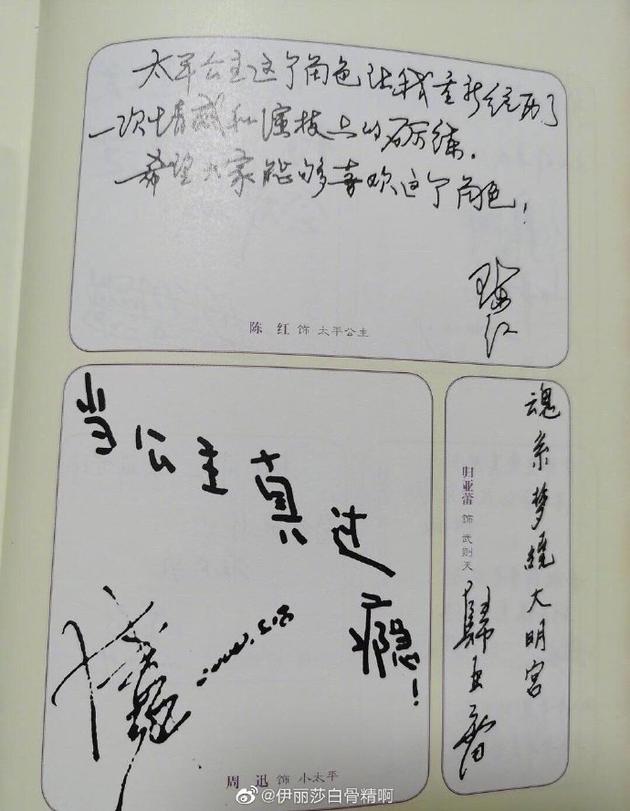 太平公主这个角色让我重新经历了
一次情感和演技上的砺练.
希望大家能够喜欢这个角色!
陈红
陈 红 饰 太平公主
当公主真过瘾!
周 迅 饰 小太平
魂系梦绕大明宫
归亚蕾 饰 武则天
歸亞蕾
@伊丽莎白骨精啊